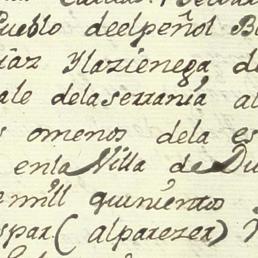 Pueblo deelpeñol B
iaz Ylaziénega de
ale delaserranía al
s omenos dela es
enla Villa de Du
emill quinientos
spar (alparezer)